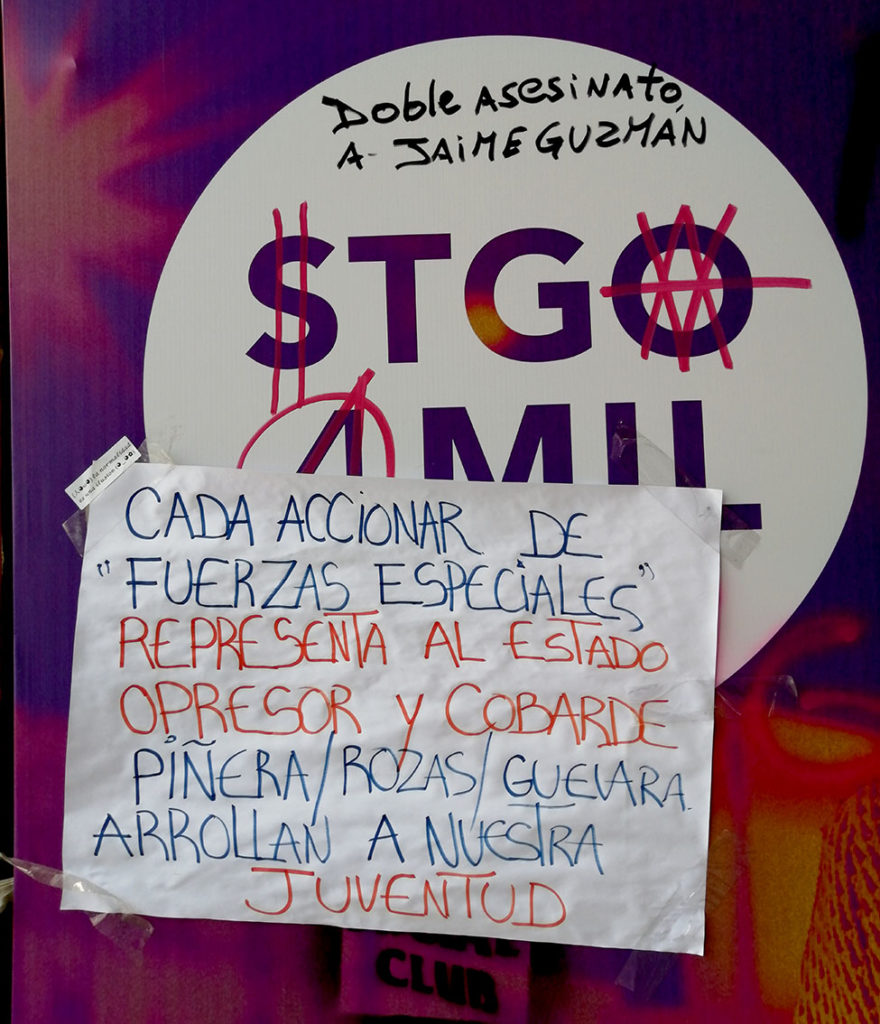 Doble asesinato
a Jaime Guzmán
STGO
A MIL
la normalidad
es una ilusión
CADA ACCIONAR DE
"FUERZAS ESPECIALES"
REPRESENTA AL ESTADO
OPRESOR Y COBARDE
PIÑERA/ROZAS/GUEVARA
ARROLLAN A NUESTRA
JUVENTUD
CLUB